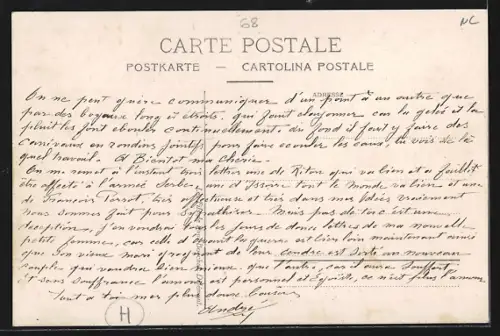 68
NC
CARTE POSTALE
POSTKARTE — CARTOLINA POSTALE
ADRESSE
On ne peut guère communiquer d'un point à un autre que
par des boyaux long et étroits. qui font clayonner car la gelée et la
pluie les font ebouler continuellement. du fond il faut y faire des
caniveaux en rondins jointifs pour faire ecouler les eaux, tu vois de là
quel travail. A Bientot ma cherie.
On me remet à l'instant une lettre de Riton qui va bien et a failli
être affecté à l'armée Serbe tout le monde va bien et une
de François très affectueuse et très dans mes Idées vraiement
nous sommes fait pour Sympathiser. Mais pas de toi c'est une
deception, j'en voudrai tous les jours de douce lettres de ma nouvelle
petite femme, car celle d'avant la guerre est bien loin maintenant ainsi
que son vieux mari grognant de leur cendre est sorti un nouveau
couple qui vaudra bien mieux que l'autre, car il aura souffert
et sans souffrance l'amour est personnel et Egoïste, ce n'est plus l'amour
Tout a toi mes plus doux baisers
André
H